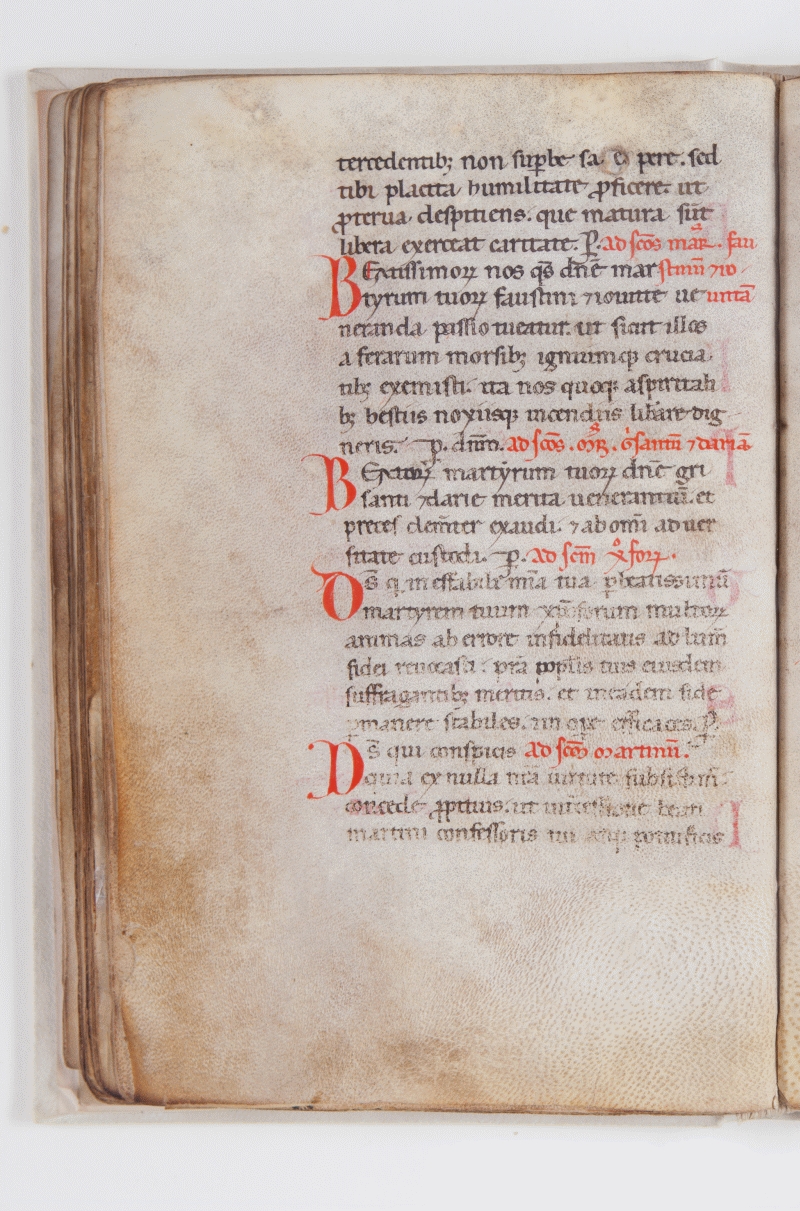 tercedentibꝫ non supbe sa e pere. sed
tibi placita humilitate ꝓficere. ut
ꝓterua despitiens. que matura sūt
libera exerceat caritate. P. Ad scōs mar̄. fau
BEatissimoꝝ nos qs̄ dn̄e mar stinū ⁊io
tyrum tuoꝝ faustini ⁊iouitte ue uittā
neranda passio tueatur. ut sicut illos
a ferarum morsibꝫ igniumqꝫ crucia
tibꝫ exemisti. ita nos quoqꝫ aspiritali
bꝫ bestiis noxiisqꝫ incendiis libare dig
neris. p. dn̄m. Ad scōs. mr̄. gͥsantū ⁊dariā
BEatoꝝ martyrum tuoꝝ dn̄e gri
santi ⁊darie merita uenerantiū. et
preces clem̄ter exaudi. ⁊ab om̄i aduer
sitate custodi. p. Ad scm̄ xͦforꝝ.
DS̄ q ineffabile mīa tua p beatissimū
martyrem tuum xp̄oforum multoꝝ
animas ab errore infidelitatis ad lum̄
fidei reuocasti. prā poplis tuis eiusdem
suffragantibꝫ meritis. et in eadem fide
pmanere stabiles. in ope efficaces. P.
DS̄ qui conspicis Ad scm̄ martinū.
quia ex nulla nrā uirtute subsistim̄
concede ꝓpitius. ut int̄cessione beati
martini confessoris tui atqꝫ pontificis